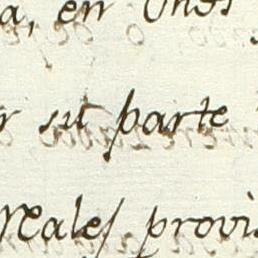 a, en
r su parte
Reales provi